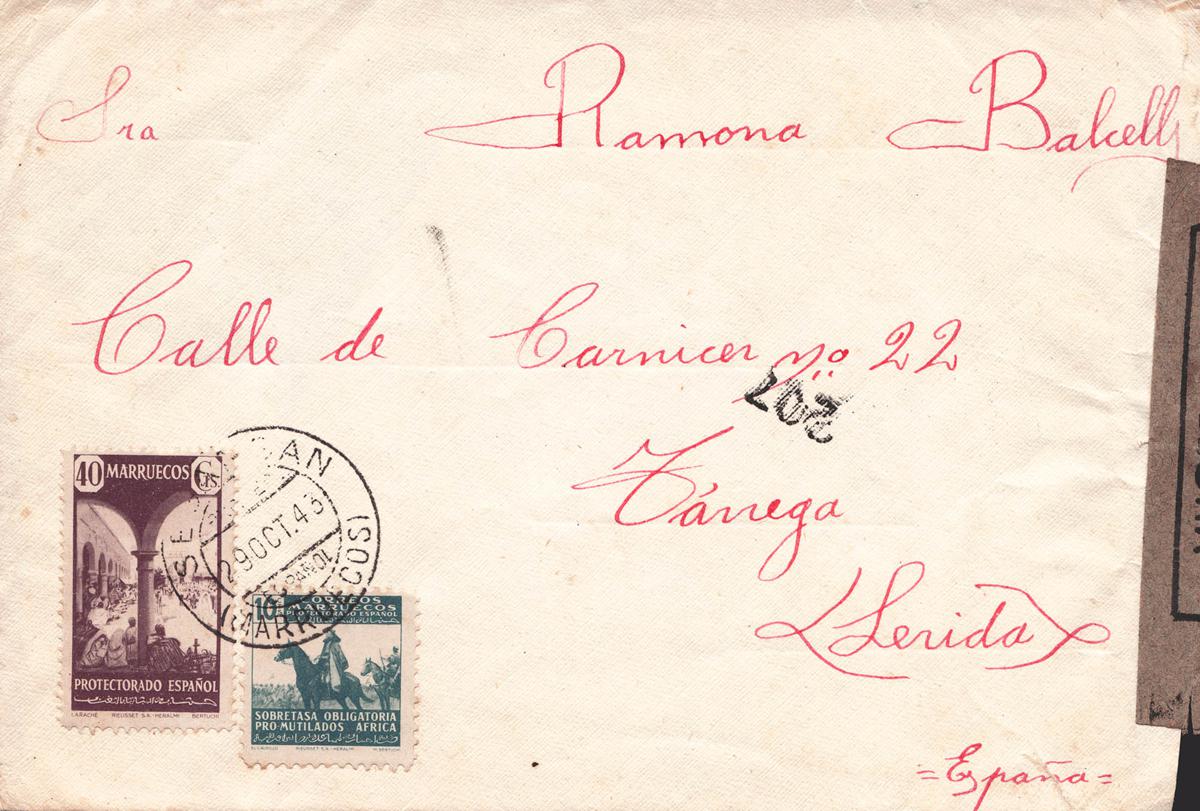 Sra Ramona Balcells
Calle de Carnicer nº 22
207
Tárrega
(Lerida)
=España=
40 MARRUECOS Cts.
PROTECTORADO ESPAÑOL
LARACHE RIEUSSET S.A.-HERALMI BERTUCHI
29 OCT. 43
(MARRUECOS)
10 CORREOS
MARRUECOS
PROTECTORADO ESPAÑOL
SOBRETASA OBLIGATORIA
PRO-MUTILADOS AFRICA
EL CAUDILLO RIEUSSET S.A.-HERALMI M. BERTUCHI